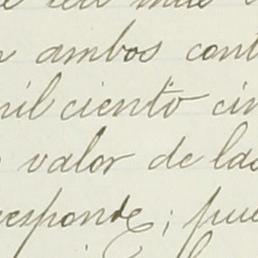 ambos cont
mil ciento cin
valor de las
responde; pue